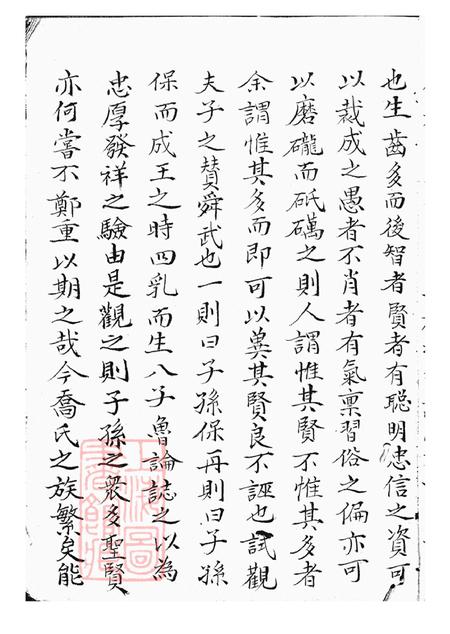 也生齒多而後智者賢者有聰明忠信之資可
以裁成之愚者不肖者有氣稟習俗之偏亦可
以磨礲而砥礪之則人謂惟其賢不惟其多者
余謂惟其多而即可以冀其賢良不誣也試觀
夫子之贊舜武也一則曰子孫保再則曰子孫
保而成王之時四乳而生八子魯論誌之以為
忠厚發祥之驗由是觀之則子孫之眾多聖賢
亦何嘗不鄭重以期之哉今喬氏之族繁矣能
上海圖
書館藏